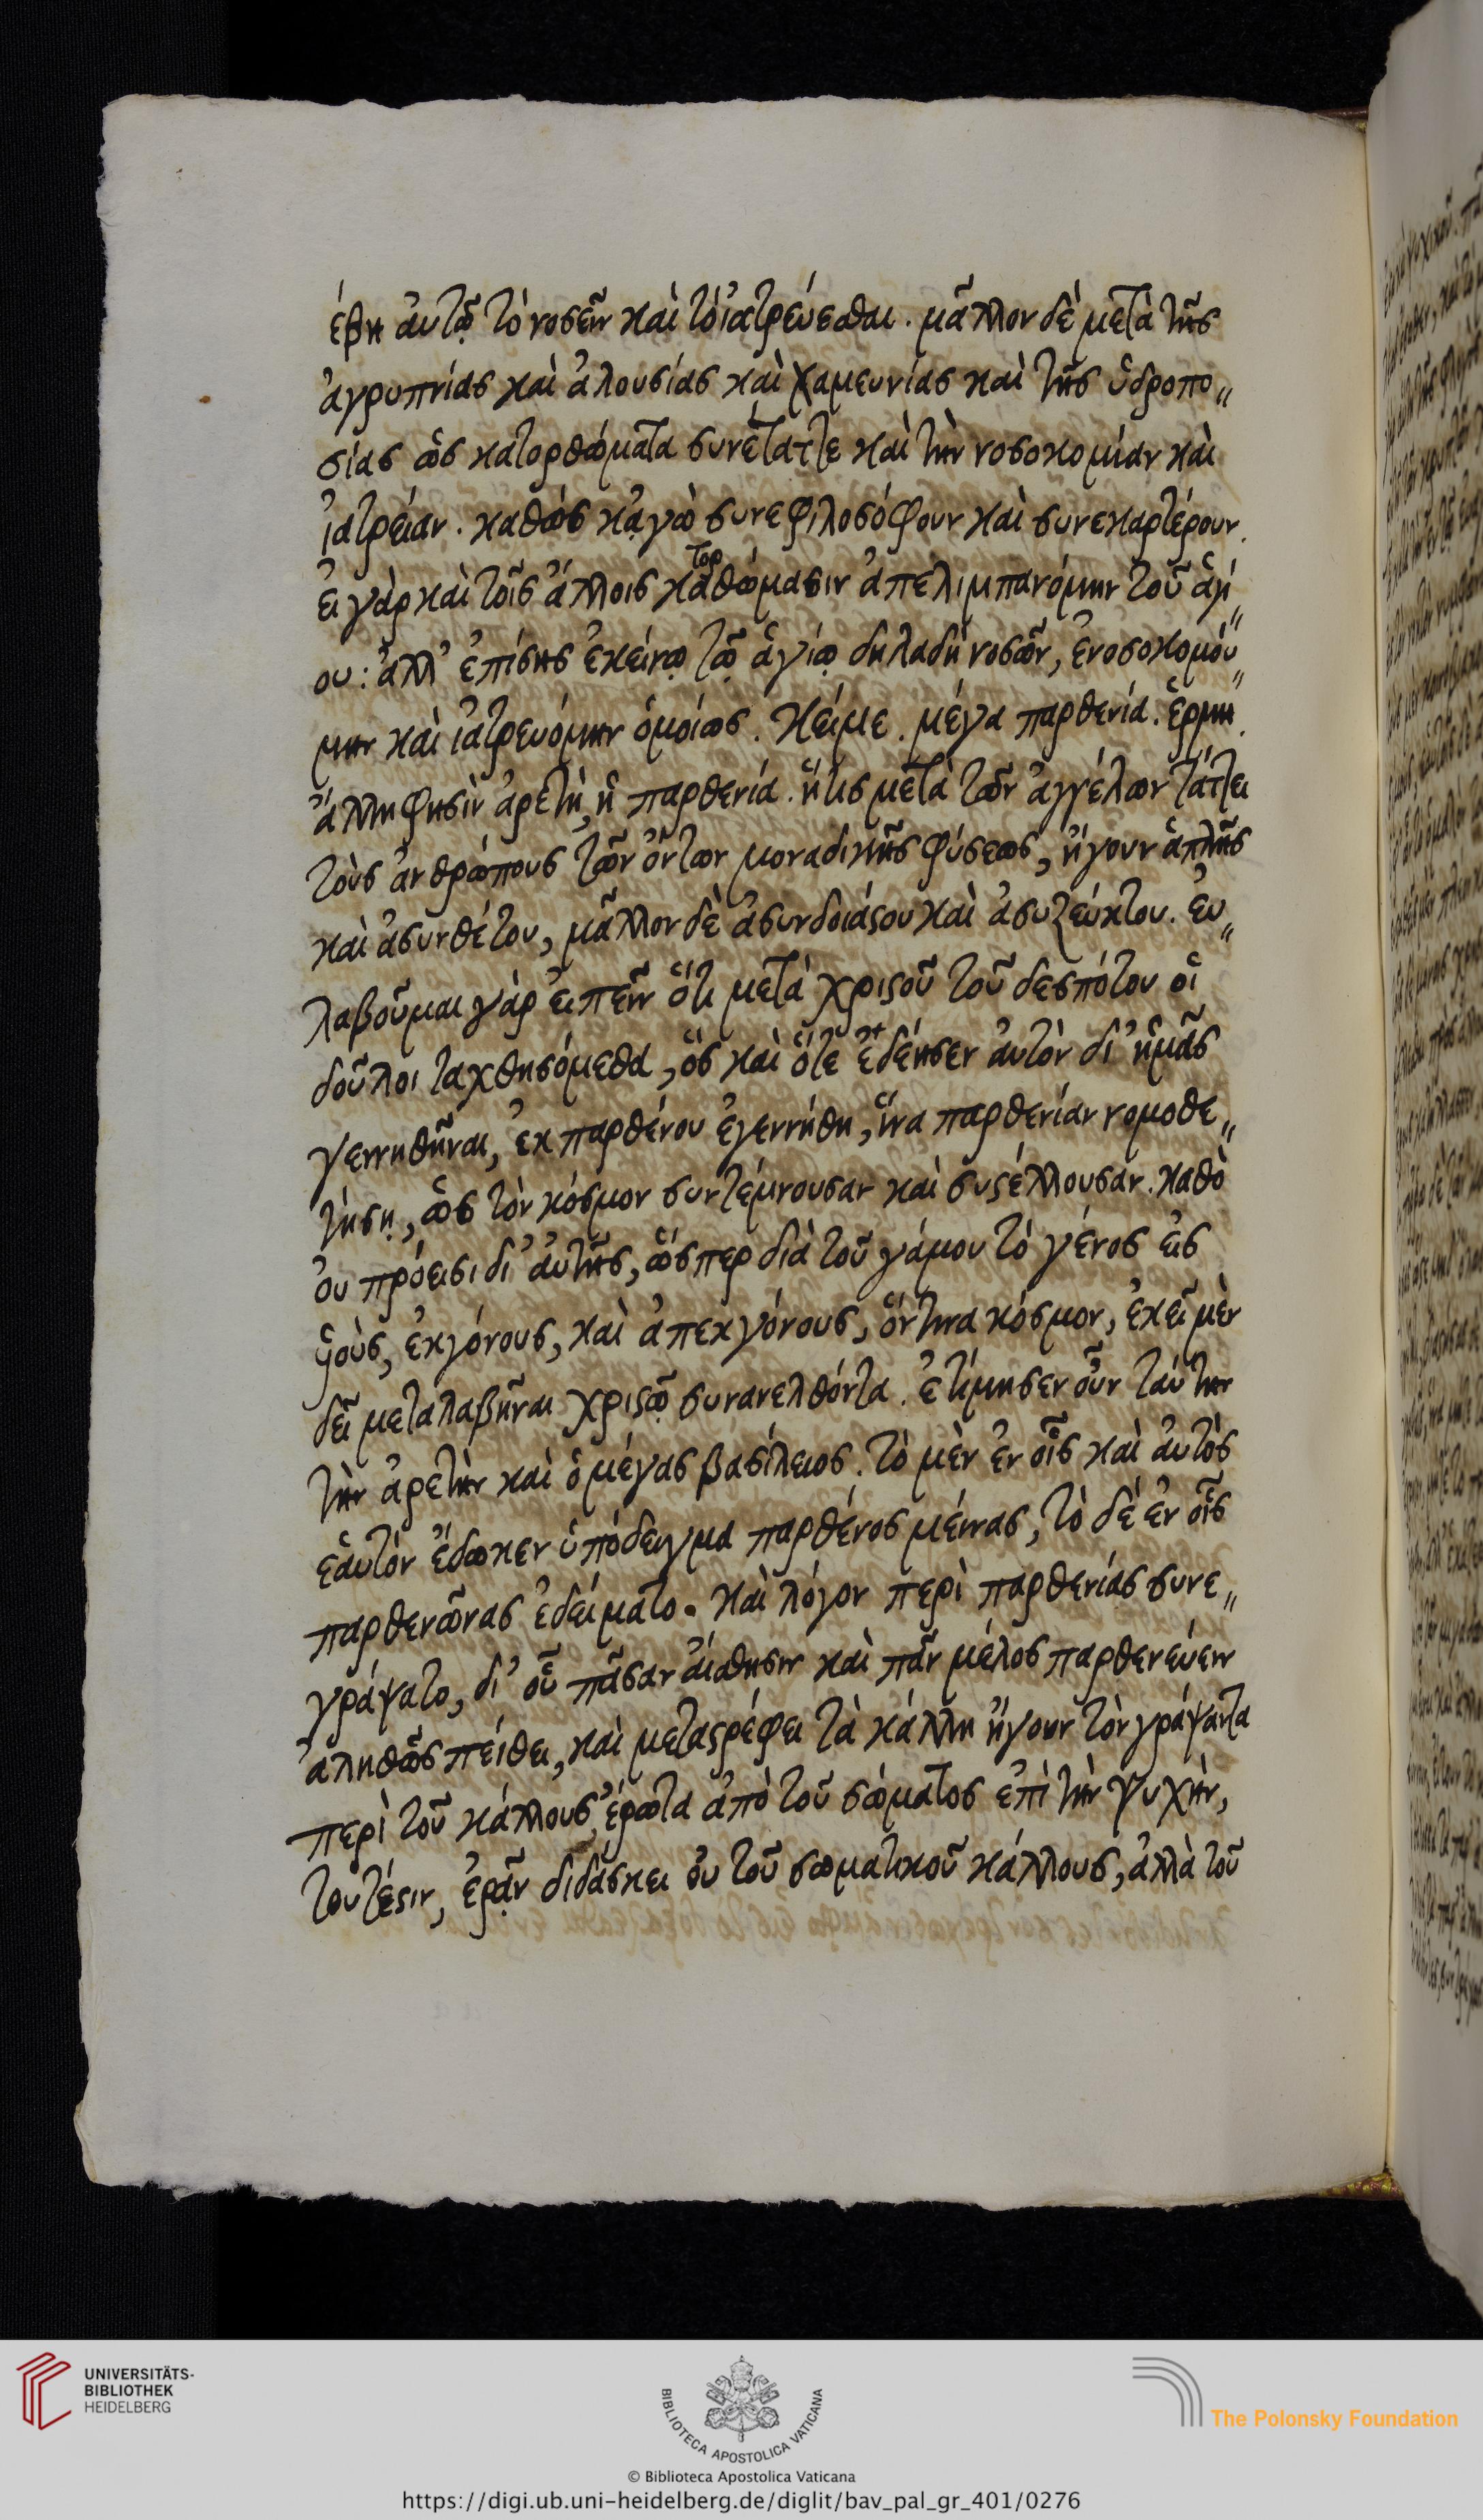 έβη ἀυτῷ τὸ νοσεῖν καὶ τὸ ἰατρεύεσθαι. μᾶλλον δὲ μετὰ τῆς
ἀγρυπνίας καὶ ἀλουσίας καὶ χαμευνίας καὶ τῆς ὑδροπο„
σίας ὡς κατορθώματα συνέταττε καὶ τὴν νοσοκομίαν καὶ
ἰατρείαν. καθὼς κἀγὼ συνεφιλοσόφουν καὶ συνεκαρτέρουν.
ἐι γὰρ καὶ τοῖς ἄλλοις κατορθώμασιν ἀπελιμπανόμην τοῦ ἁγί„
ου: ἀλλ' ἐπίσης ἐκείνῳ τῷ ἁγίῳ δηλαδὴ νοσῶν, ἐνοσοκομού„
μην καὶ ἰατρευόμην ὁμοίως. κείμε. μέγα παρθενία. ἑρμη.
ἄλλη φησὶν ἀρετὴ, ἡ παρθενία. ἥτις μετὰ τῶν ἀγγέλων τάττει
τοὺς ἀνθρώπους τῶν ὄντων μοναδικῆς φύσεως, ἤγουν ἁπλῆς
καὶ ἀσυνθέτου, μᾶλλον δὲ ἀσυνδοιάστου καὶ ἀσυζεύκτου. ἐυ„
λαβοῦμαι γὰρ ἐιπεῖν ὅτι μετὰ χριστοῦ τοῦ δεσπότου οἱ
δοῦλοι ταχθησόμεθα, ὃς καὶ ὅτε ἐδέησεν ἀυτὸν δι' ἡμᾶς
γεννηθῆναι, ἐκ παρθένου ἐγεννήθη, ἵνα παρθενίαν νομοθε„
τήσῃ, ὡς τὸν κόσμον συντέμνουσαν καὶ συστέλλουσαν. καθὸ
ὀυ πρόεισι δι' ἀυτῆς, ὥσπερ διὰ τοῦ γάμου τὸ γένος ἐις
υἱοὺς, ἐκγόνους, καὶ ἀπεκγόνους, ὅντινα κόσμον, ἐκεῖ μὲν
δεῖ μεταλαβῆναι χριστῷ συνανελθόντα. ἐτίμησεν οὖν ταύτην
τὴν ἀρετὴν καὶ ὁ μέγας βασίλειος. τὸ μὲν ἐν οἷς καὶ ἀυτὸς
ἑαυτὸν ἔδωκεν ὑπόδειγμα παρθένος μείνας, τὸ δὲ ἐν οἷς
παρθενῶνας ἐδείματο. καὶ λόγον περὶ παρθενίας συνε„
γράψατο, δι' οὗ πᾶσαν ἄισθησιν καὶ πᾶν μέλος παρθενεύειν
ἀληθῶς πείθει, καὶ μεταστρέφει τὰ κάλλη ἤγουν τὸν γράψαντα
περὶ τοῦ κάλλους, ἔρωτα ἀπὸ τοῦ σώματος ἐπὶ τὴν ψυχὴν,
τουτέστιν, ἐρᾷν διδάσκει ὀυ τοῦ σωματικοῦ κάλλους, ἀλλὰ τοῦ
UNIVERSITÄTS-
BIBLIOTHEK
HEIDELBERG
BIBLIOTECA APOSTOLICA VATICANA
The Polonsky Foundation
© Biblioteca Apostolica Vaticana
https://digi.ub.uni-heidelberg.de/diglit/bav_pal_gr_401/0276